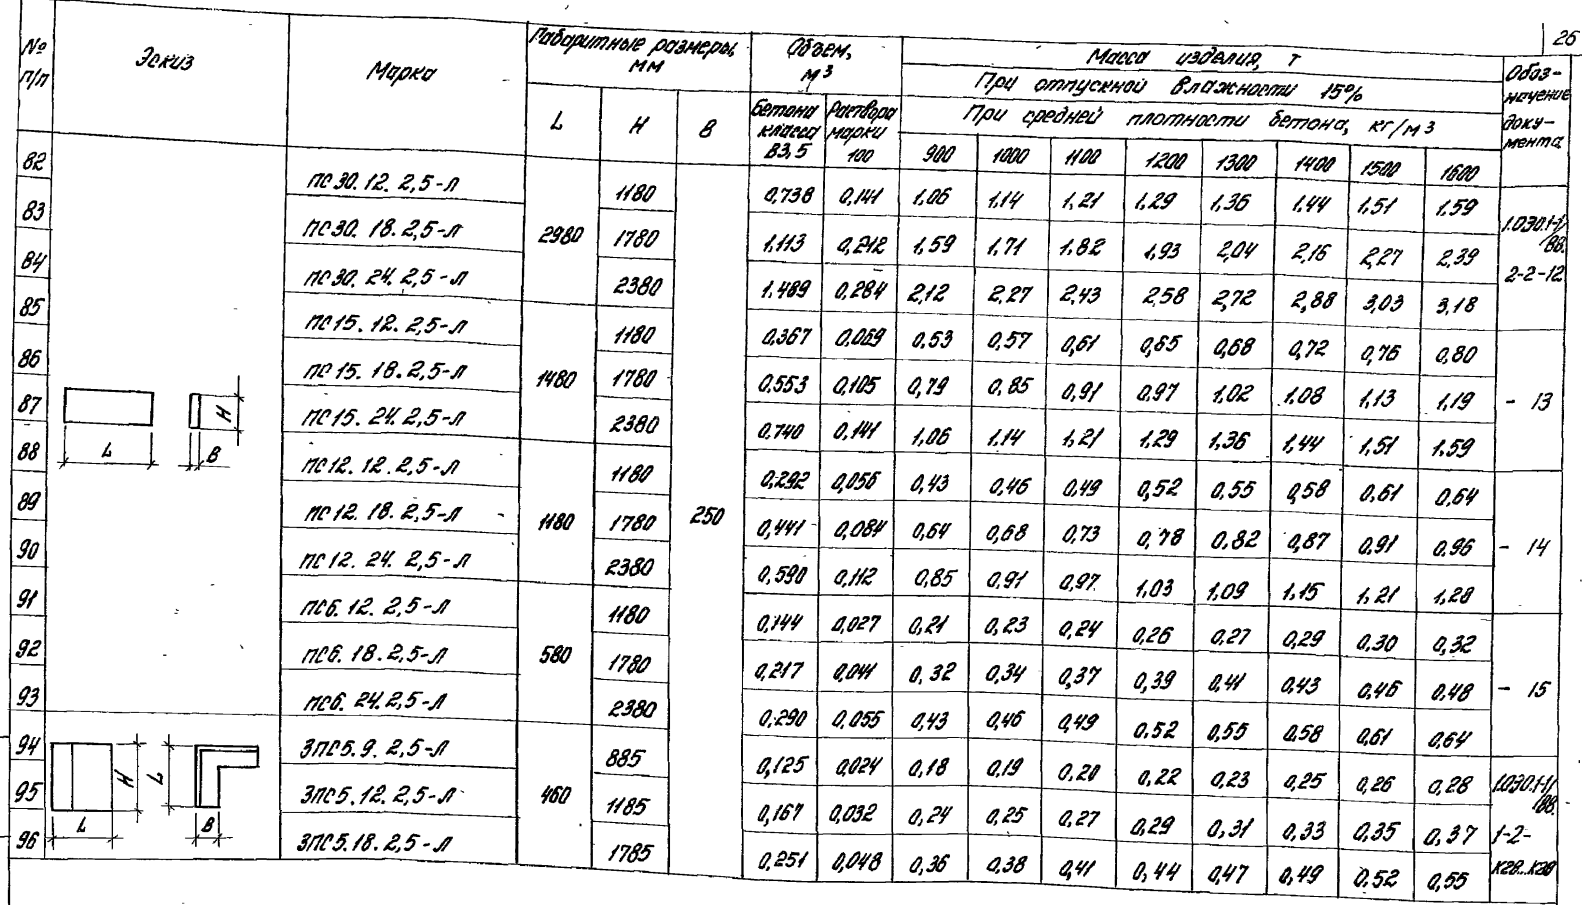 26
№ п/п Эскиз Марка Габаритные размеры, мм Объем, м³ Масса изделия, т Обозначение документа
При отпускной влажности 15%
L H B Бетона класса В3,5 Раствора марки 100 При средней плотности бетона, кг/м³
900 1000 1100 1200 1300 1400 1500 1600
82 ПС30.12.2,5-Л 2980 1180 250 0,738 0,141 1,06 1,14 1,21 1,29 1,36 1,44 1,51 1,59 1.030.1-1/88.
83 ПС30.18.2,5-Л 1780 1,113 0,212 1,59 1,71 1,82 1,93 2,04 2,16 2,27 2,39 2-2-12
84 ПС30.24.2,5-Л 2380 1.489 0,284 2,12 2,27 2,43 2,58 2,72 2,88 3,03 3,18
85 ПС15.12.2,5-Л 1480 1180 0,367 0,069 0.53 0,57 0,61 0,65 0,68 0,72 0,76 0,80
86 ПС15.18.2,5-Л 1780 0,553 0,105 0,79 0,85 0,91 0,97 1,02 1,08 1,13 1,19 - 13
87 ПС15.24.2,5-Л 2380 0.740 0,141 1,06 1,14 1,21 1,29 1,36 1,44 1,51 1,59
L B H
88 ПС12.12.2,5-Л 1180 1180 0,292 0,056 0,43 0,46 0,49 0,52 0,55 0,58 0,61 0,64
89 ПС12.18.2,5-Л 1780 0,441 0,084 0,64 0,68 0,73 0,78 0.82 0,87 0,91 0,96 - 14
90 ПС12.24.2,5-Л 2380 0,590 0,112 0,85 0,91 0,97 1,03 1,09 1,15 1,21 1,28
91 ПС6.12.2,5-Л 580 1180 0,144 0,027 0,21 0,23 0,24 0,26 0,27 0,29 0,30 0,32
92 ПС6.18.2,5-Л 1780 0,217 0,041 0,32 0,34 0,37 0,39 0,41 0,43 0,46 0,48 - 15
93 ПС6.24.2,5-Л 2380 0,290 0,055 0,43 0,46 0,49 0.52 0,55 0,58 0,61 0,64
94 3ПС5.9.2,5-Л 460 885 0,125 0,024 0,18 0,19 0,20 0,22 0,23 0,25 0,26 0,28 1.030.1-1/88.
95 3ПС5.12.2,5-Л 1185 0,167 0,032 0,24 0,25 0,27 0,29 0,31 0,33 0,35 0,37 1-2-
H L L B
96 3ПС5.18.2,5-Л 1785 0,251 0,048 0,36 0,38 0,41 0,44 0,47 0,49 0,52 0,55